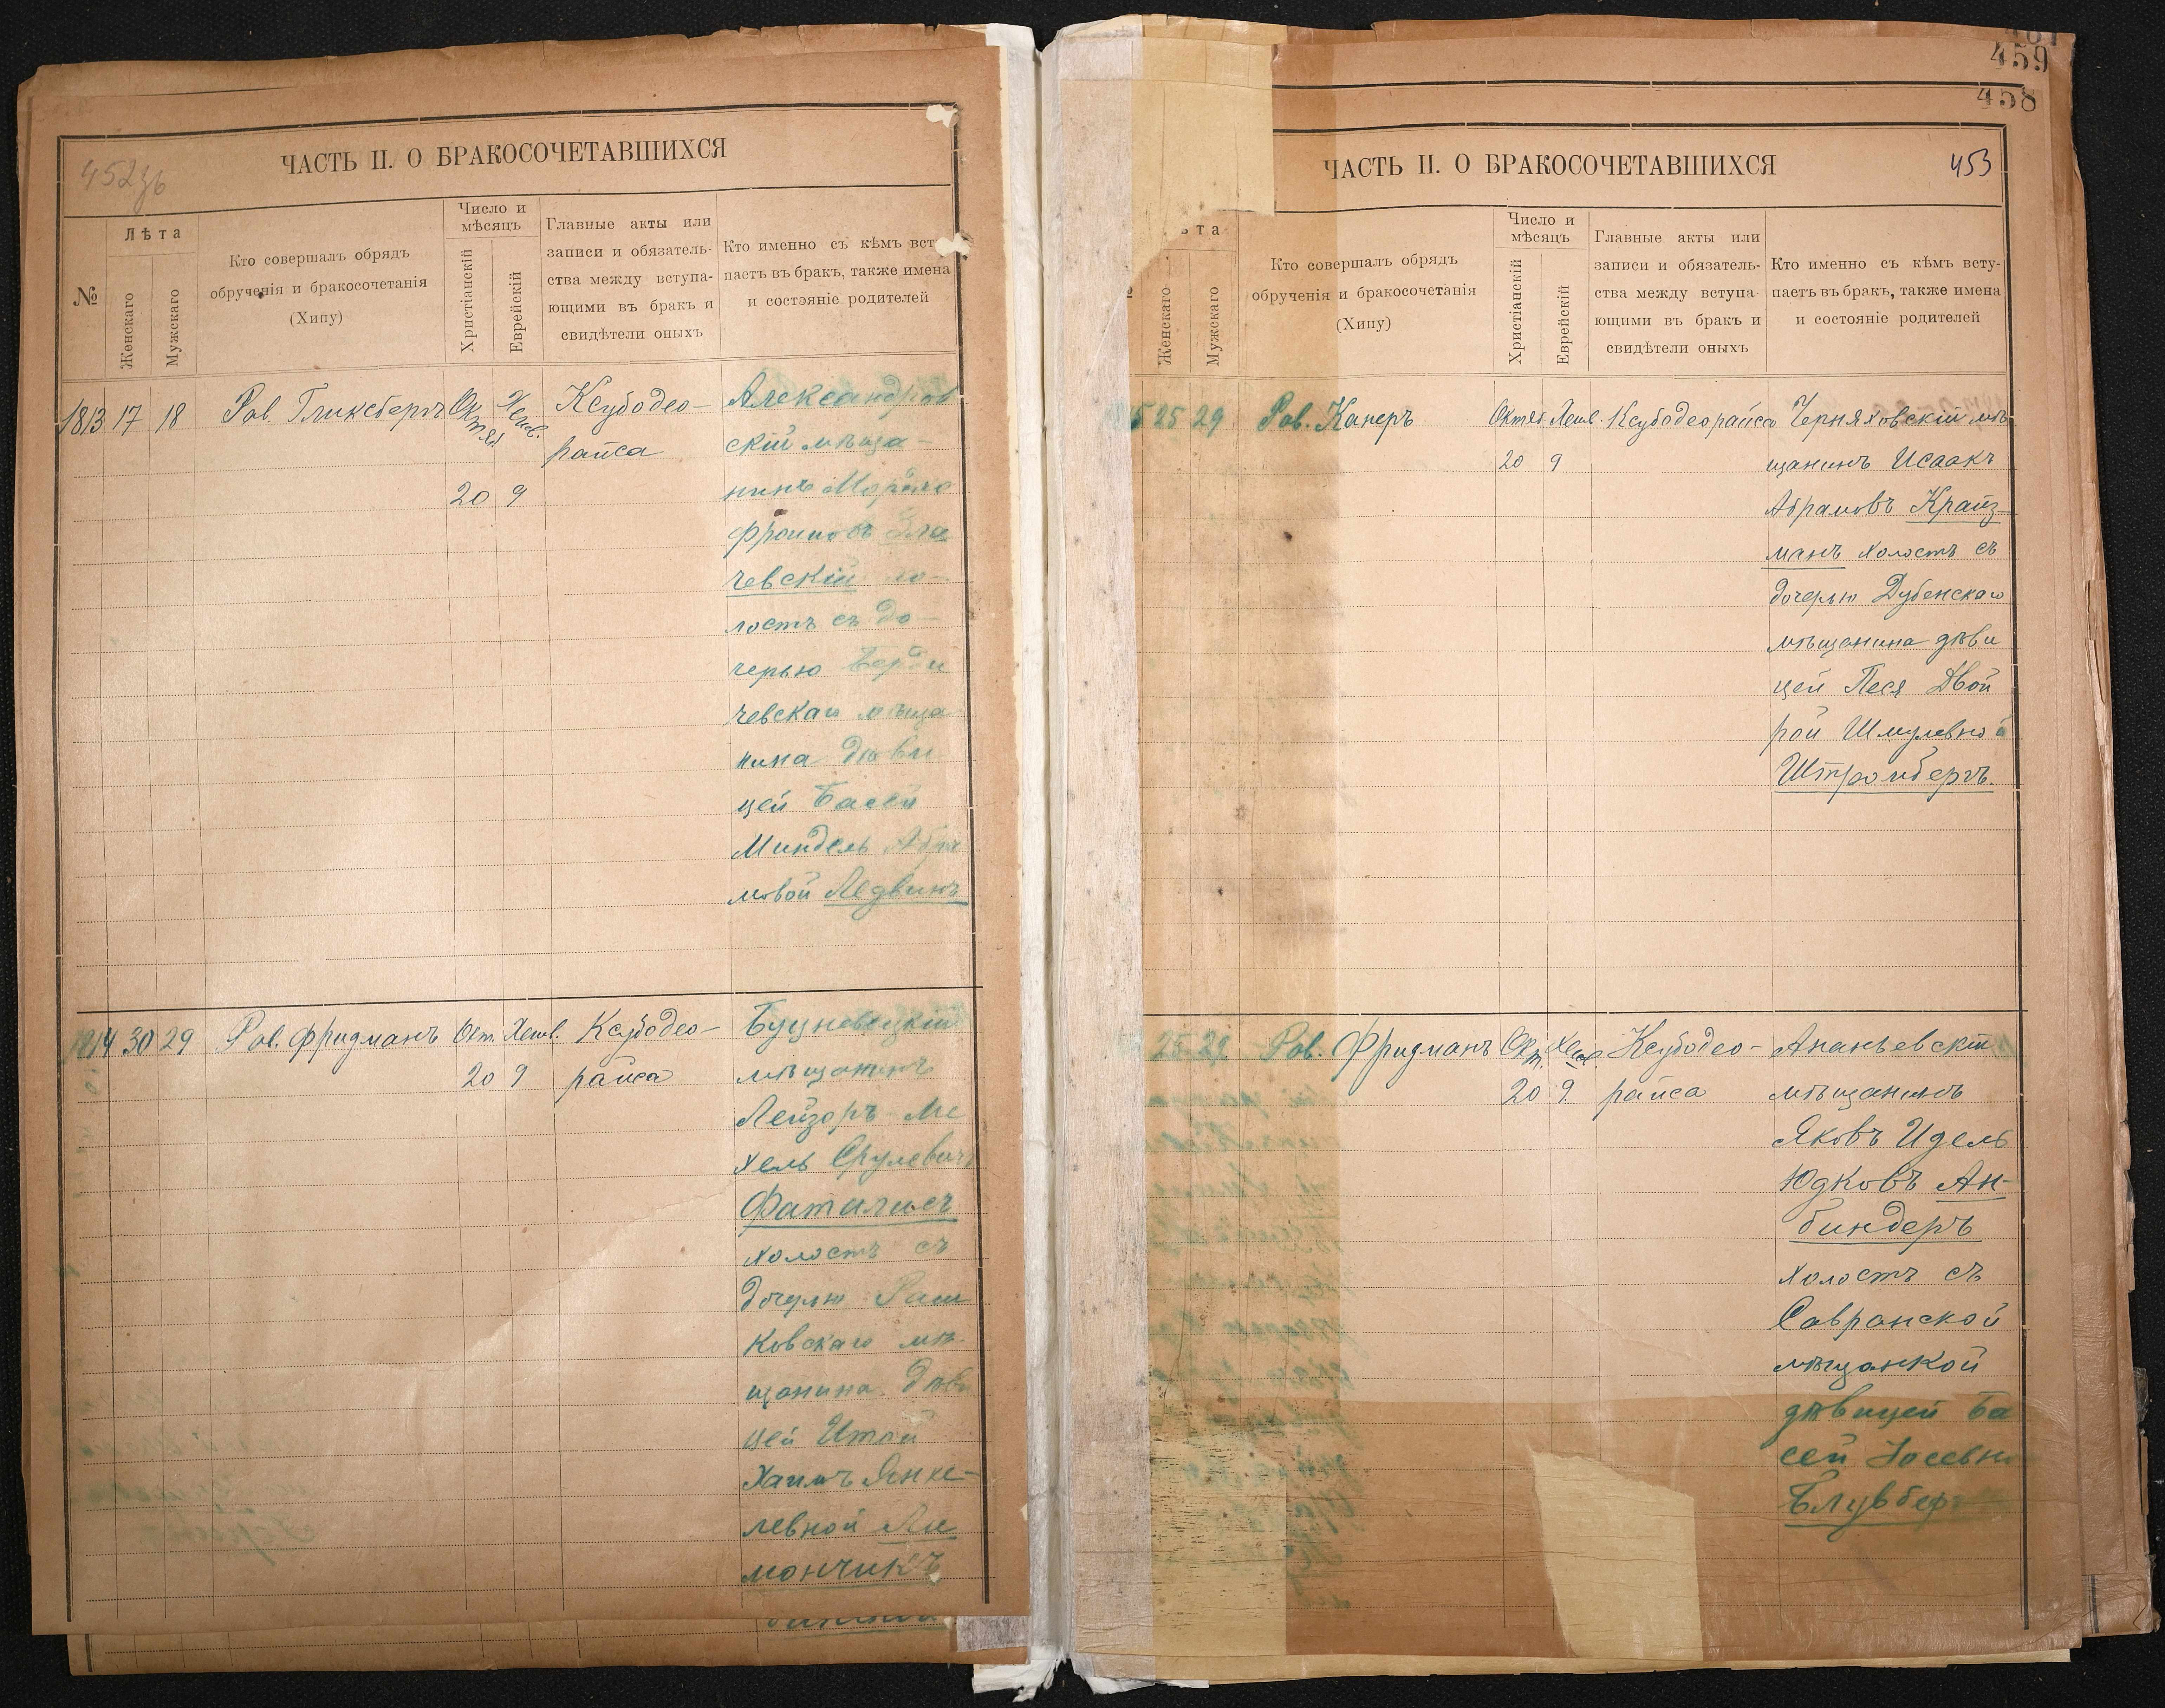 452 зв
ЧАСТЬ II. О БРАКОСОЧЕТАВШИХСЯ
№
Лѣта
Женскаго
Мужскаго
Кто совершалъ обрядъ
обрученія и бракосочетанія
(Хипу)
Число и
мѣсяцъ
Христіанскій
Еврейскій
Главные акты или
записи и обязатель-
ства между вступа-
ющими въ бракъ и
свидѣтели оныхъ
Кто именно съ кѣмъ вст
паетъ въ бракъ, также имена
и состояніе родителей
1813 17 18 Рав. Гликсбергъ Октяб. Хешв. Ксубодео-
райса
20 9
Александров
скій мѣща-
нинъ Мордко
Фроимовъ Зла
чевскій хо-
лостъ съ до-
черью Берди
чевскаго мѣща
нина дѣви
цей Басей
Миндель Абра
мовой Ледвинъ
1814 30 29 Рав. Фридманъ Окт. Хешв. Ксубодео-
20 9 райса
мѣщанинъ
Лейзоръ Ме
хель Срулевичъ
Фаталисъ
холостъ съ
дочерью Раш
ковскаго мѣ
щанина дѣви
цей Итой
Хаимъ Янке-
левной Ли
мончикъ
459
458
453
ЧАСТЬ II. О БРАКОСОЧЕТАВШИХСЯ
ѣта
Женскаго
Мужскаго
Кто совершалъ обрядъ
обрученія и бракосочетанія
(Хипу)
Число и
мѣсяцъ
Христіанскій
Еврейскій
Главные акты или
записи и обязатель-
ства между вступа
ющими въ бракъ и
свидѣтели оныхъ
Кто именно съ кѣмъ всту-
паетъ въ бракъ, также имена
и состояніе родителей
5 25 29 Рав. Канеръ Октяб. Хешв. Ксубодеорайса
20 9
Черняховскій мѣ
щанинъ Исаакъ
Абрамовъ Крайз-
манъ холостъ съ
дочерью Дубенскаго
мѣщанина дѣви
цей Песя Двой
рой Шмулевной
Штромбергъ.
25 29 Рав. Фридманъ Окт. Хешв. Ксубодео-
20 9 райса
Ананьевскій
мѣщанинъ
Яковъ Идель
Юдковъ Ан-
биндеръ
холостъ съ
Савранской
мѣщанкой
дѣвицей Ба
сей Іосевно